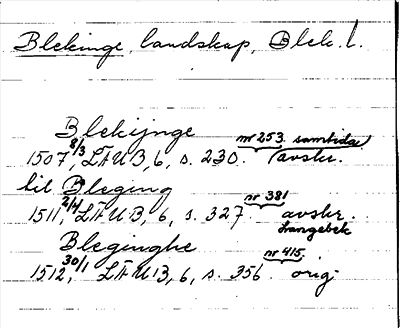 Blekinge, landskap, Blek. l.
Blekijnge
1507 8/3, LÄUB, 6, s. 230. nr 253. samtida avskr.
till Bleging
1511, 2/4 LÄUB, 6, s. 327. nr 381 avskr. Langebek
Bleginghe
1512, 30/1 LÄUB, 6, s. 356. nr 415. orig.